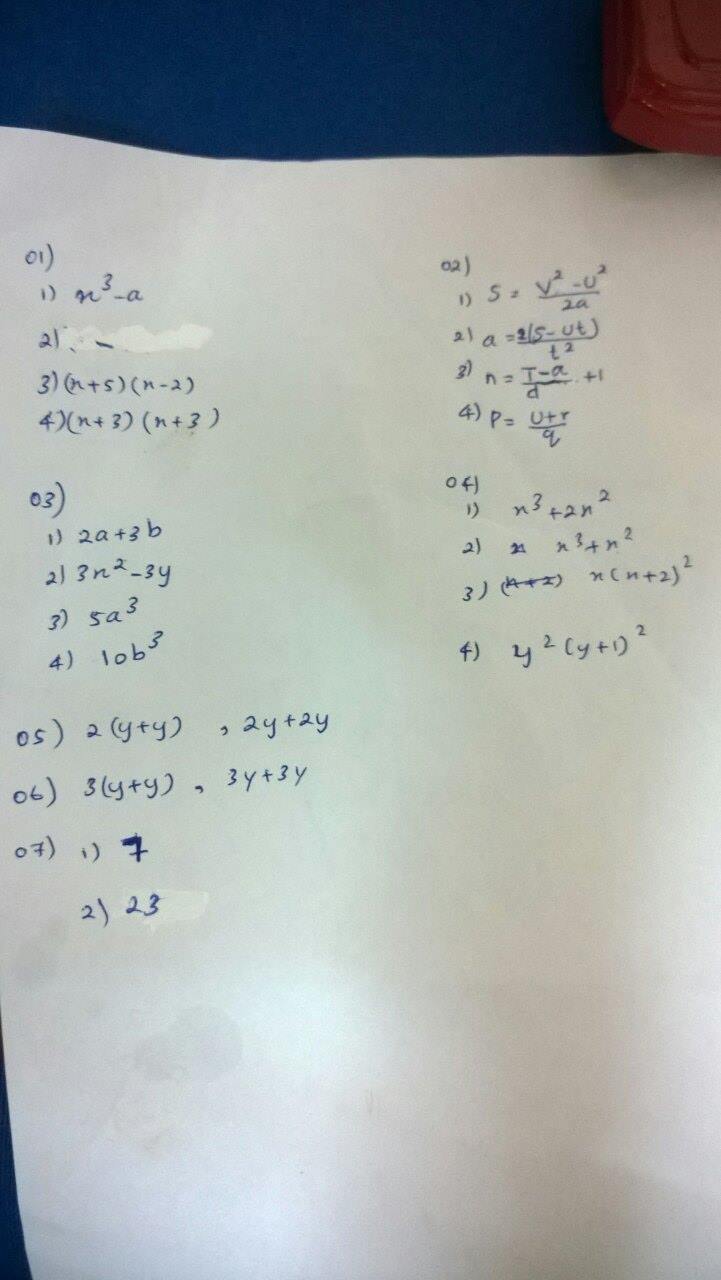 01)
1) x³-a
2) -
3) (x+5) (x-2)
4) (x+3) (x+3)
02)
1) S = V²-U²/2a
2) a = 2(S-Ut)/t²
3) n = T-a/d +1
4) P = U+r/q
03)
1) 2a+3b
2) 3x²-3y
3) 5a³
4) 10b³
04)
1) x³+2x²
2) x³+x²
3) x(x+2)²
4) y²(y+1)²
05) 2(y+y) , 2y+2y
06) 3(y+y) , 3y+3y
07) 1) 7
2) 23